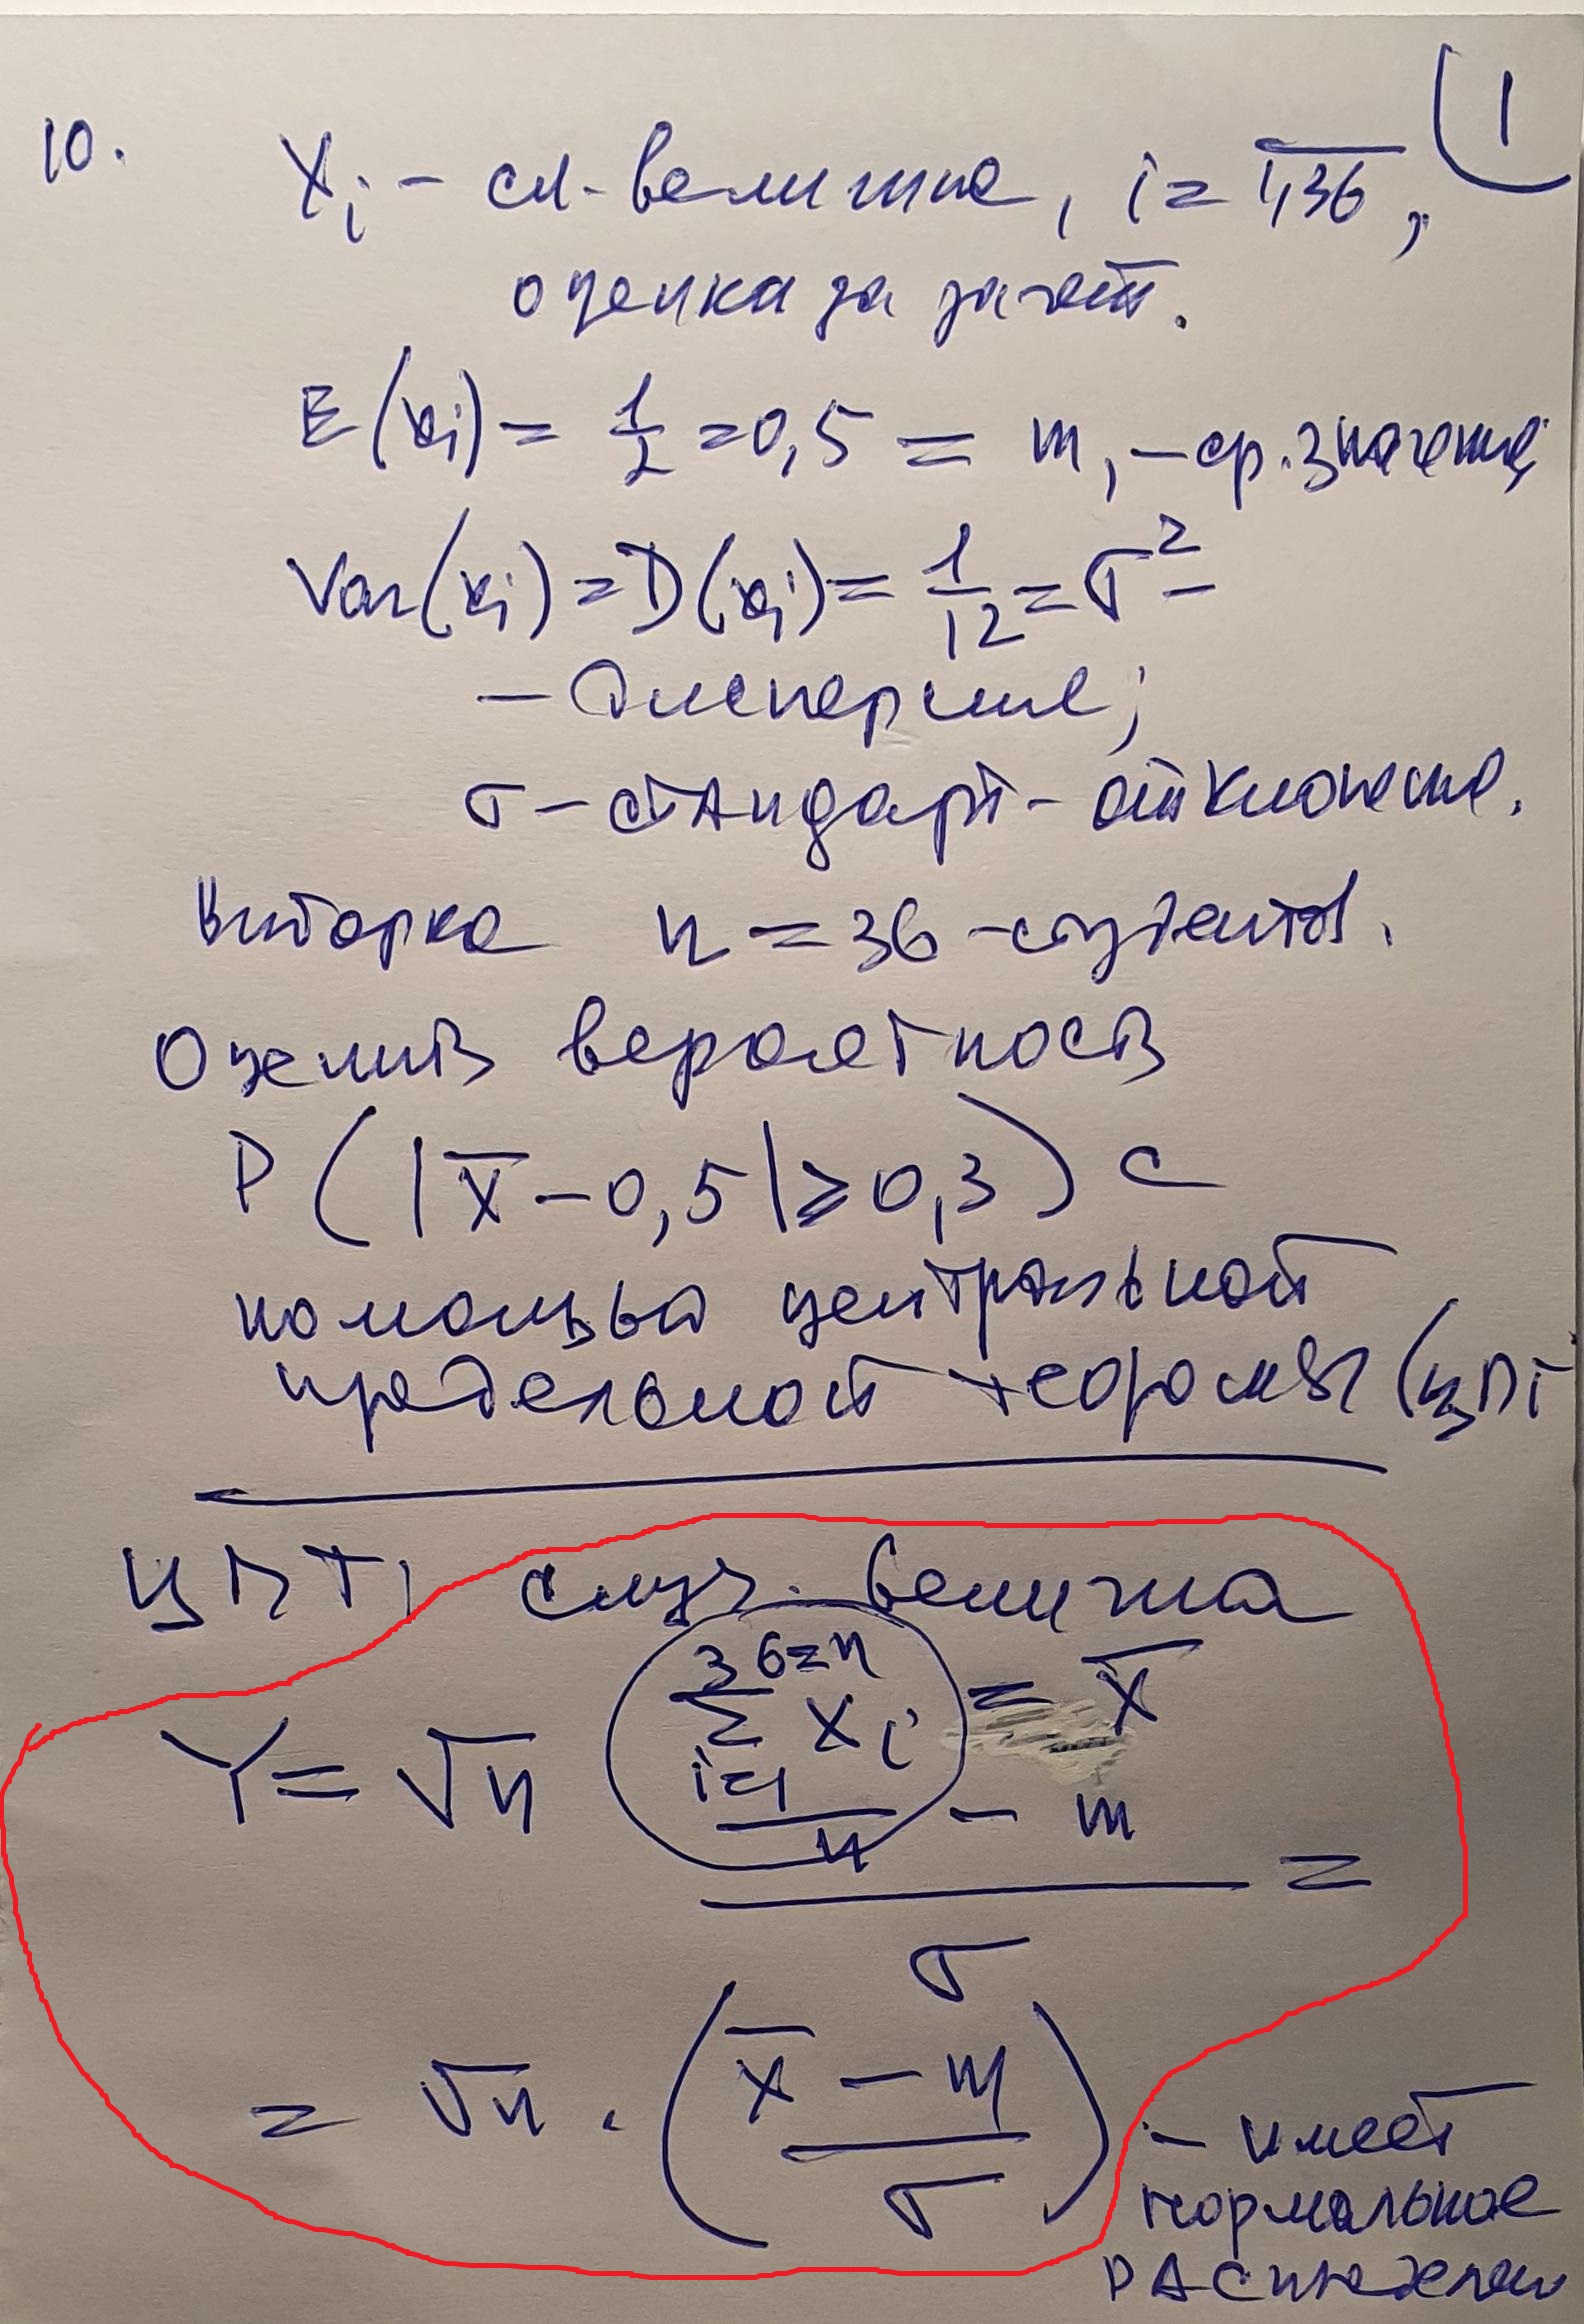 1
10. Xᵢ - сл. величина, i = 1,36,
оценка за зачет.
E(xᵢ) = 1/2 = 0,5 = m, - ср. значение
Var(xᵢ) = D(xᵢ) = 1/12 = σ² -
- Дисперсия;
σ - стандарт. отклонение.
Выборка n = 36 - студентов.
Оценить вероятность
P(|X̅ - 0,5| ≥ 0,3) с
помощью центральной
предельной теоремы (ЦПТ
ЦПТ: случ. величина
Y = √n (∑_{i=1}^{36=n} Xᵢ)/n = X̅ - m
=
σ
= √n · (X̅ - m / σ) - имеет
нормальное
распределен